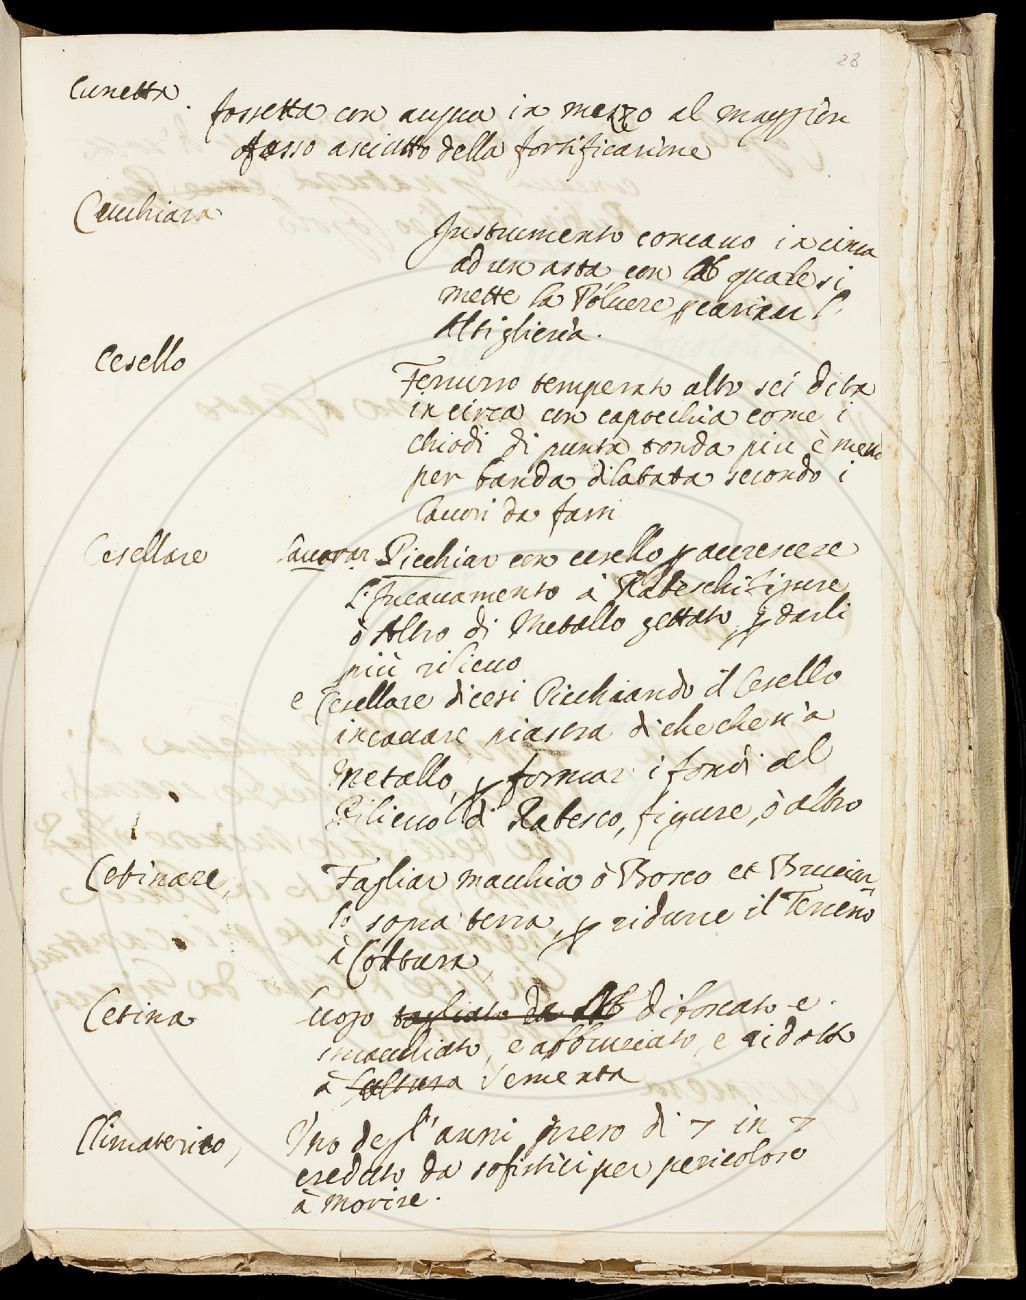 28
Cunetta.
fossetta con acqua in mezzo al maggior
fosso asciutto della fortificazione
Cucchiara
Instrumento concauo in cima
ad un asta con la quale si
mette la Poluere p caricar l'
Artiglieria.
Cesello
Ferruzzo temperato alto sei dita
in circa con capocchia come i
chiodi di punta tonda più è meno
per banda dilatata secondo i
lauori da farsi
Cesellare
lauorar Picchiar con cesello p accrescere
l'Incauamento à Rabeschi figure
ò Altro di Metallo gettato p darli
più rilieuo
e Cesellare dicesi Picchiando il Cesello
incauare piastra di che che n'à
Metallo, p formar i fondi al
Rilieuo di Rabesco, figure, ò altro
Cetinare,
Tagliar macchia ò Bosco et Bruciar
lo sopra terra, p ridurre il Terreno
à Cottura
Cetina
luogo tagliato da diboscato e
smacchiato, e abbruciato, e ridotto
à Cultura sementa
Climaterico,
Uno degl' anni preso di 7 in 7
creduto da sofistici per pericoloso
à morire.